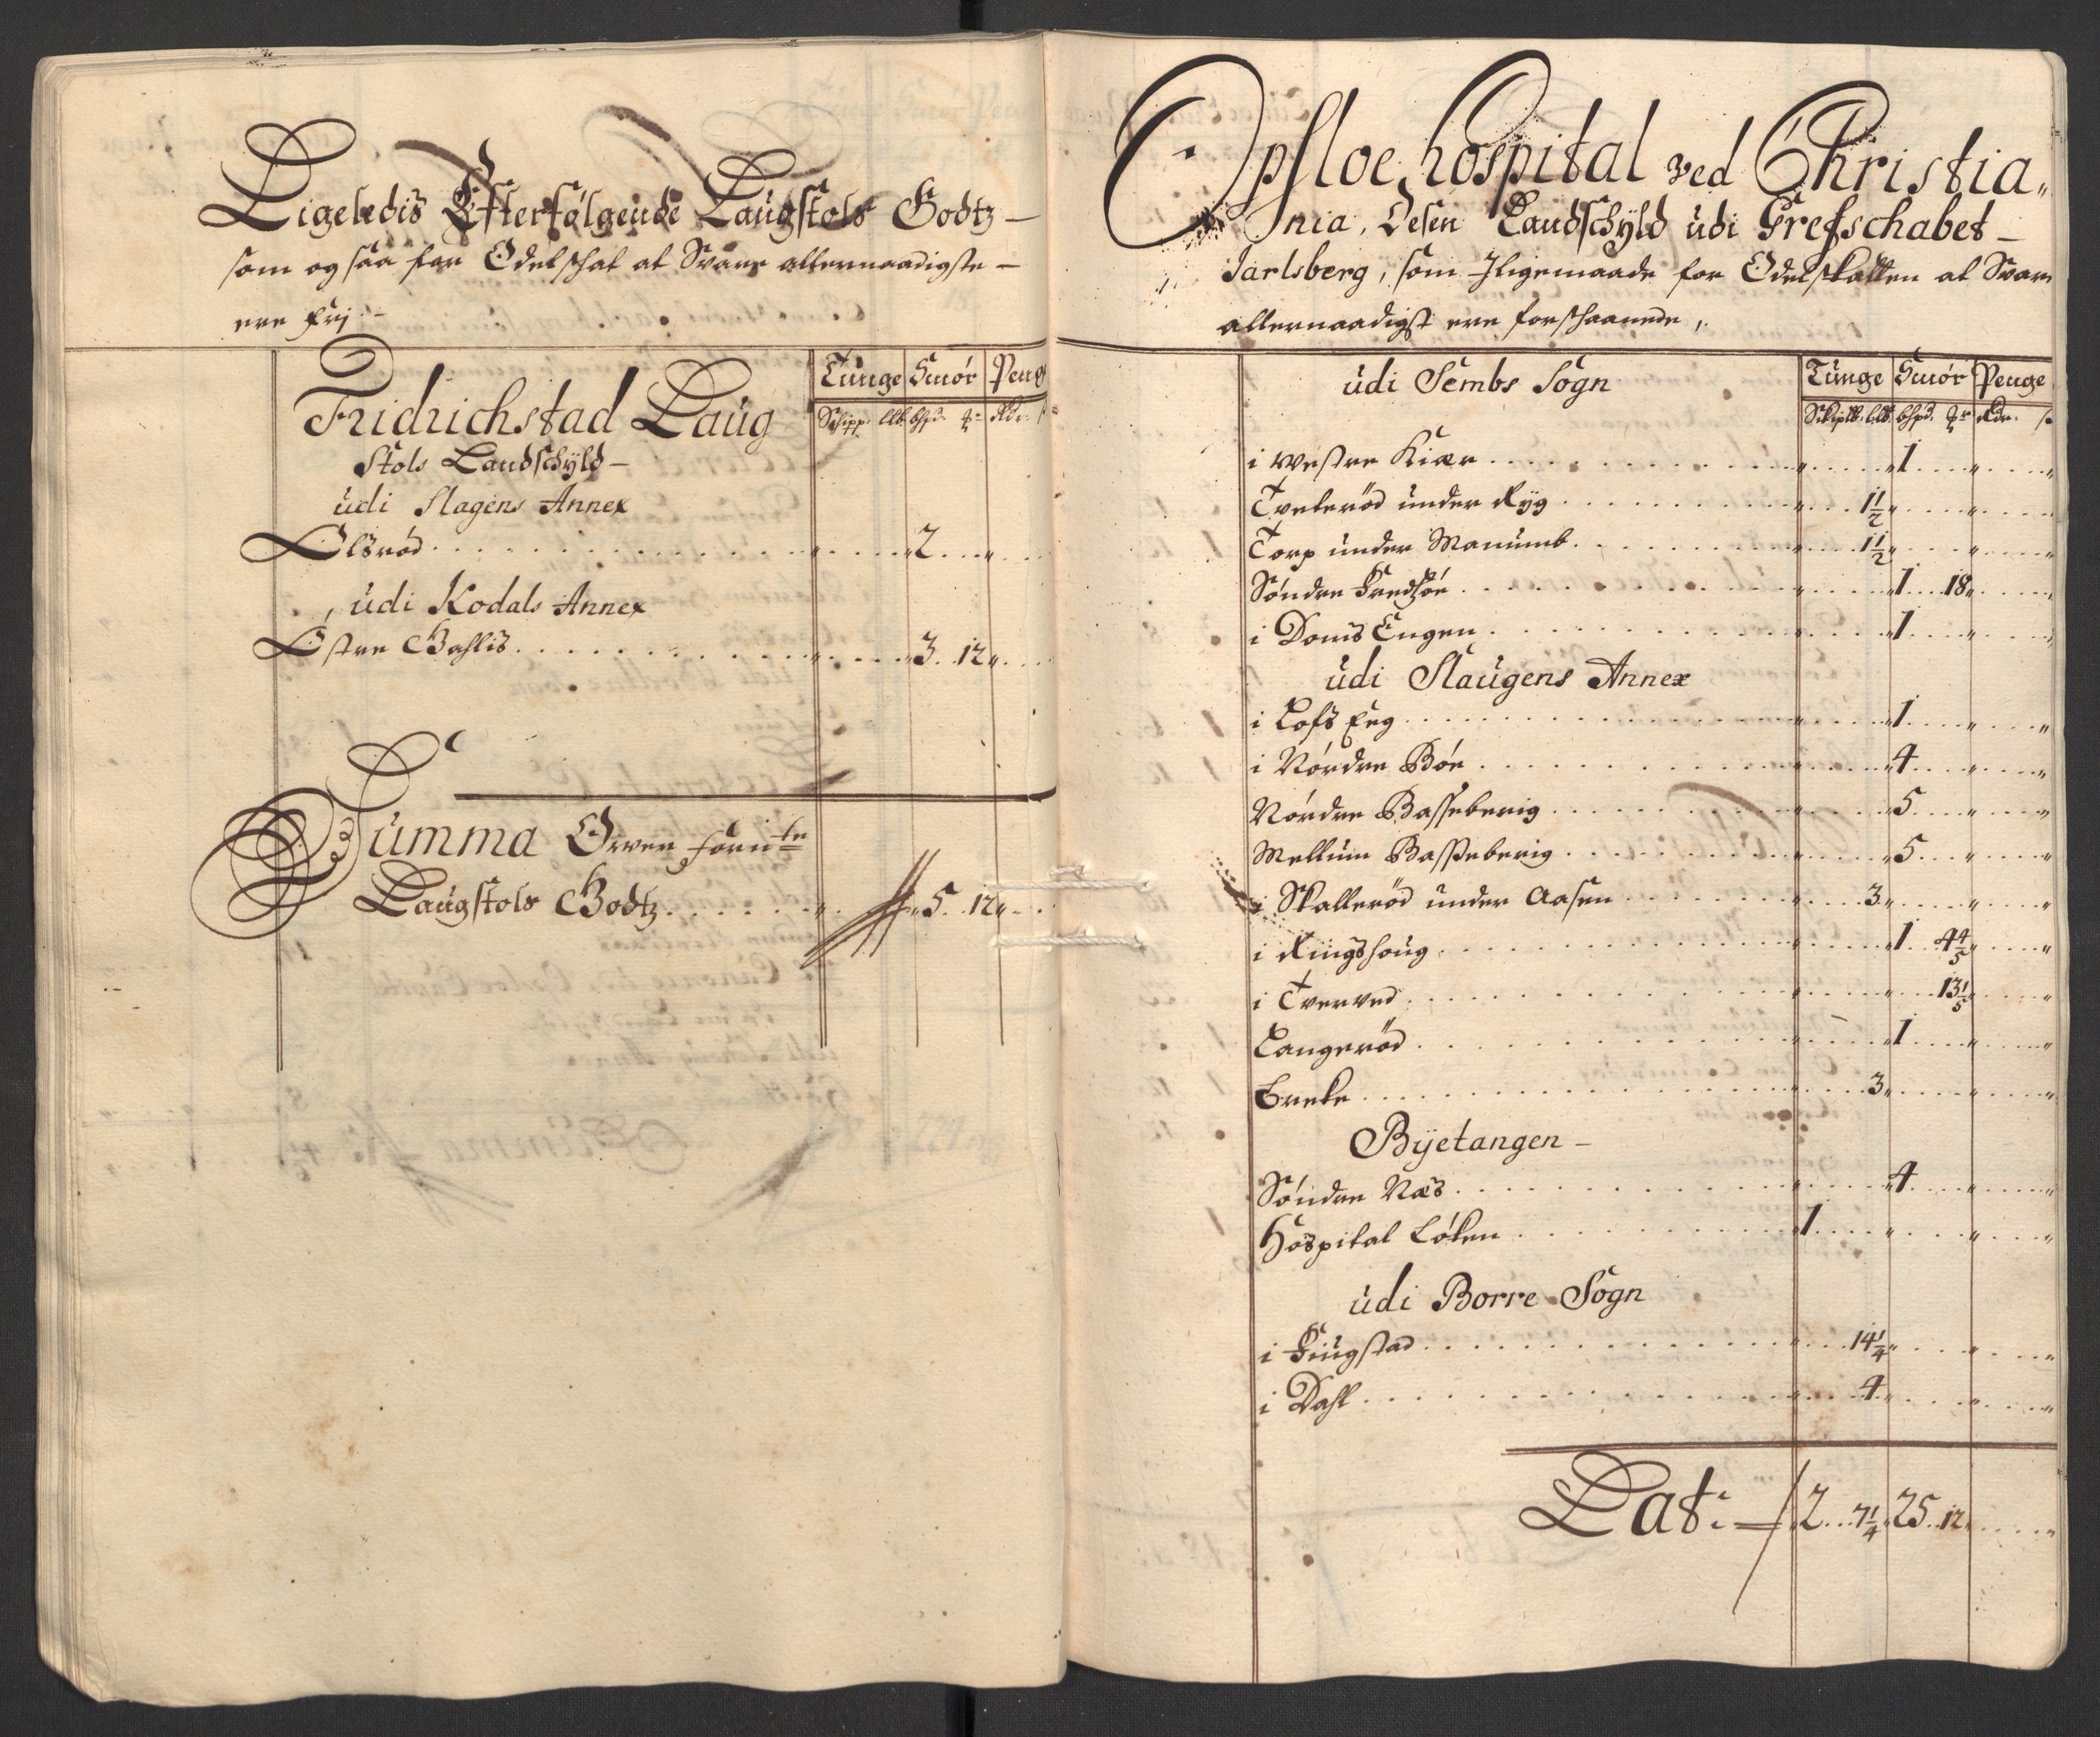 Ligeledis Efterfølgende Laugstols Godtz —
som og saa for Odelschat at Svare allernaadigste —
ere frj —
Tunge Smør Peng
Schipp: Llb. bhpd. ℔r Rdr.
Fridrichstad Laug
Stols Landschyld —
udi Slagens Annex
Ølsrød . . . . " . . . " 2 . . . " . . .
udi Kodals Annex
Østre Gahlis . . . . " . . . " 3 . . 12 " . . .
Summa Øfver forn:te
Laugstols Godtz . . . . " . . . " 5 . . 12 " . . .
Opsloe hospital ved Christia„
nia, Desen Landschyld udi Grefschabet —
Jarlsberg, som Jligemaade for Odelskatten at Svare
allernaadigst ere forschaanede,
udi Sembs Sogn
Tunge Smør Penge
Skiplb. Llb. bhpd. ℔r Rdr. s
i westre Kiær . . . . " . . . " 1 . . . " . . . "
Tveterød under Ryg . . . . " . . . 1½ " . . . " . . . "
Torp under Manumb . . . . " . . . 1½ " . . . " . . . "
Søndre Fredsøe . . . . " . . . " 1 . . 18 " . . . "
i Doms Engen . . . . " . . . " 1 . . . " . . . "
udi Slaugens Annex
i Lofs Eng . . . . " . . . " 1 . . . " . . . "
i Nordre Bøe . . . . " . . . " 4 . . . " . . . "
Nordre Basseberig . . . . " . . . " 5 . . . " . . . "
Mellum Basseberig . . . . " . . . " 5 . . . " . . . "
i Skallerød under Aasen . . . . " . . . 3 " . . . " . . . "
i Ringshoug . . . . " . . . " 1 . . 4⅘ " . . . "
i Tverved . . . . " . . . " . . . 13⅕ " . . . "
Langerød . . . . " . . . " 1 . . . " . . . "
Breke . . . . " . . . 3 " . . . " . . . "
Byetangen —
Søndre Næs . . . . " . . . " 4 . . . " . . . "
Hospital Løken . . . . " 1 . . . " . . . " . . . "
udi Borre Sogn
i Fiugstad . . . . " . . . 14¼ " . . . " . . . "
i Dahl . . . . " . . . 4 " . . . " . . . "
Lat: — " 2 . . 7¼ " 25 . . 12 " . . . "